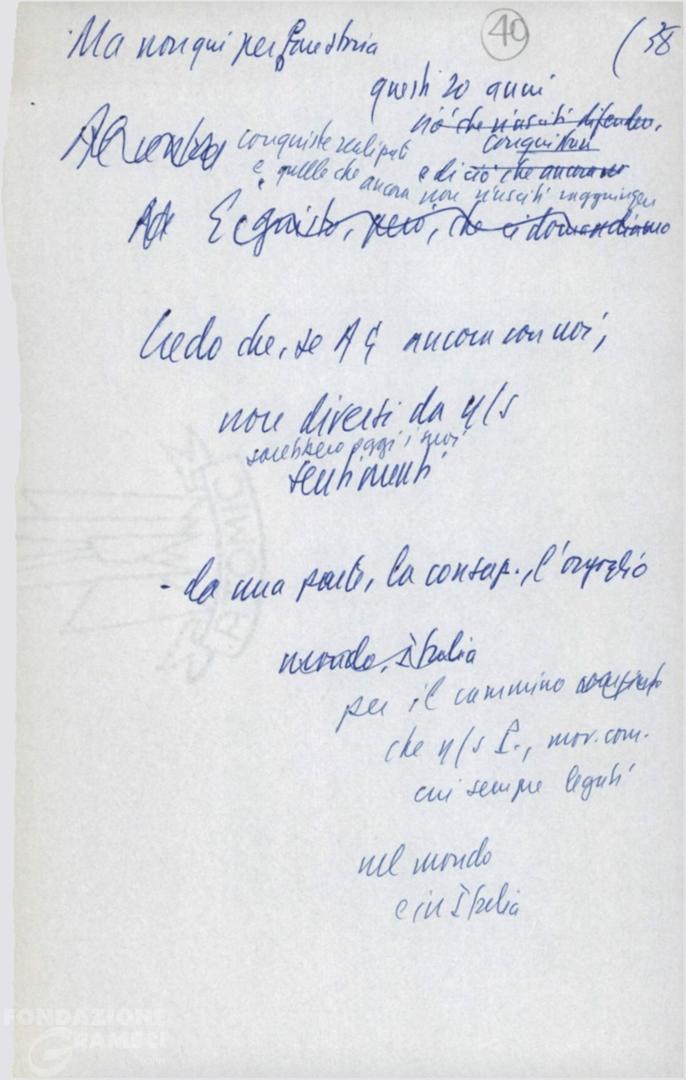 Ma non qui per fare storia
40
(38
questi 20 anni
ciò che riusciti difendere,
conquistare
conquiste realizzate
e di ciò che ancora
e quelle che ancora non riusciti raggiungere
E giusto, però, che ci domandiamo
Credo che, se A G ancora con noi,
non diversi da n/s
sarebbero oggi i suoi
sentimenti
- da una parte, la consap., l'orgoglio
mondo, Italia
per il cammino
che n/s P., mov. com.
cui sempre legati
nel mondo
e in Italia
ATOMIC
FONDAZIONE
GRAMSCI